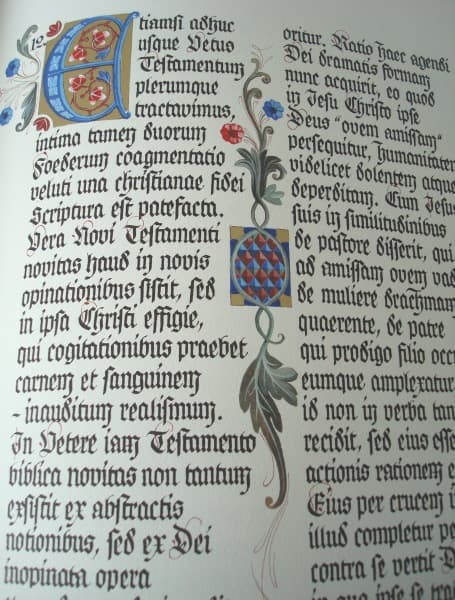 12
Etiamsi adhuc
usque Vetus
Testamentum
plerumque
tractavimus,
intima tamen duorum
Foederum coagmentatio
veluti una christianae fidei
Scriptura est patefacta.
Vera Novi Testamenti
novitas haud in novis
opinationibus sistit, sed
in ipsa Christi effigie,
qui cogitationibus praebet
carnem et sanguinem
-inauditum realismum.
In Vetere iam Testamento
biblica novitas non tantum
exsistit ex abstractis
notionibus, sed ex Dei
inopinata opera
oritur. Ratio haec agendi
Dei dramatis formam
nunc acquirit, eo quod
in Jesu Christo ipse
Deus "ovem amissam"
persequitur, humanitatem
videlicet dolentem atque
deperditam. Cum Jesus
suis in similitudinibus
de pastore disserit, qui
ad amissam ovem
de muliere drachmam
quaerente, de patre
qui prodigo filio
eumque amplexatur
id non in verba
recidit, sed eius
actionis rationem
Eius per crucem
illud completur
contra se vertit
in qua ipse se